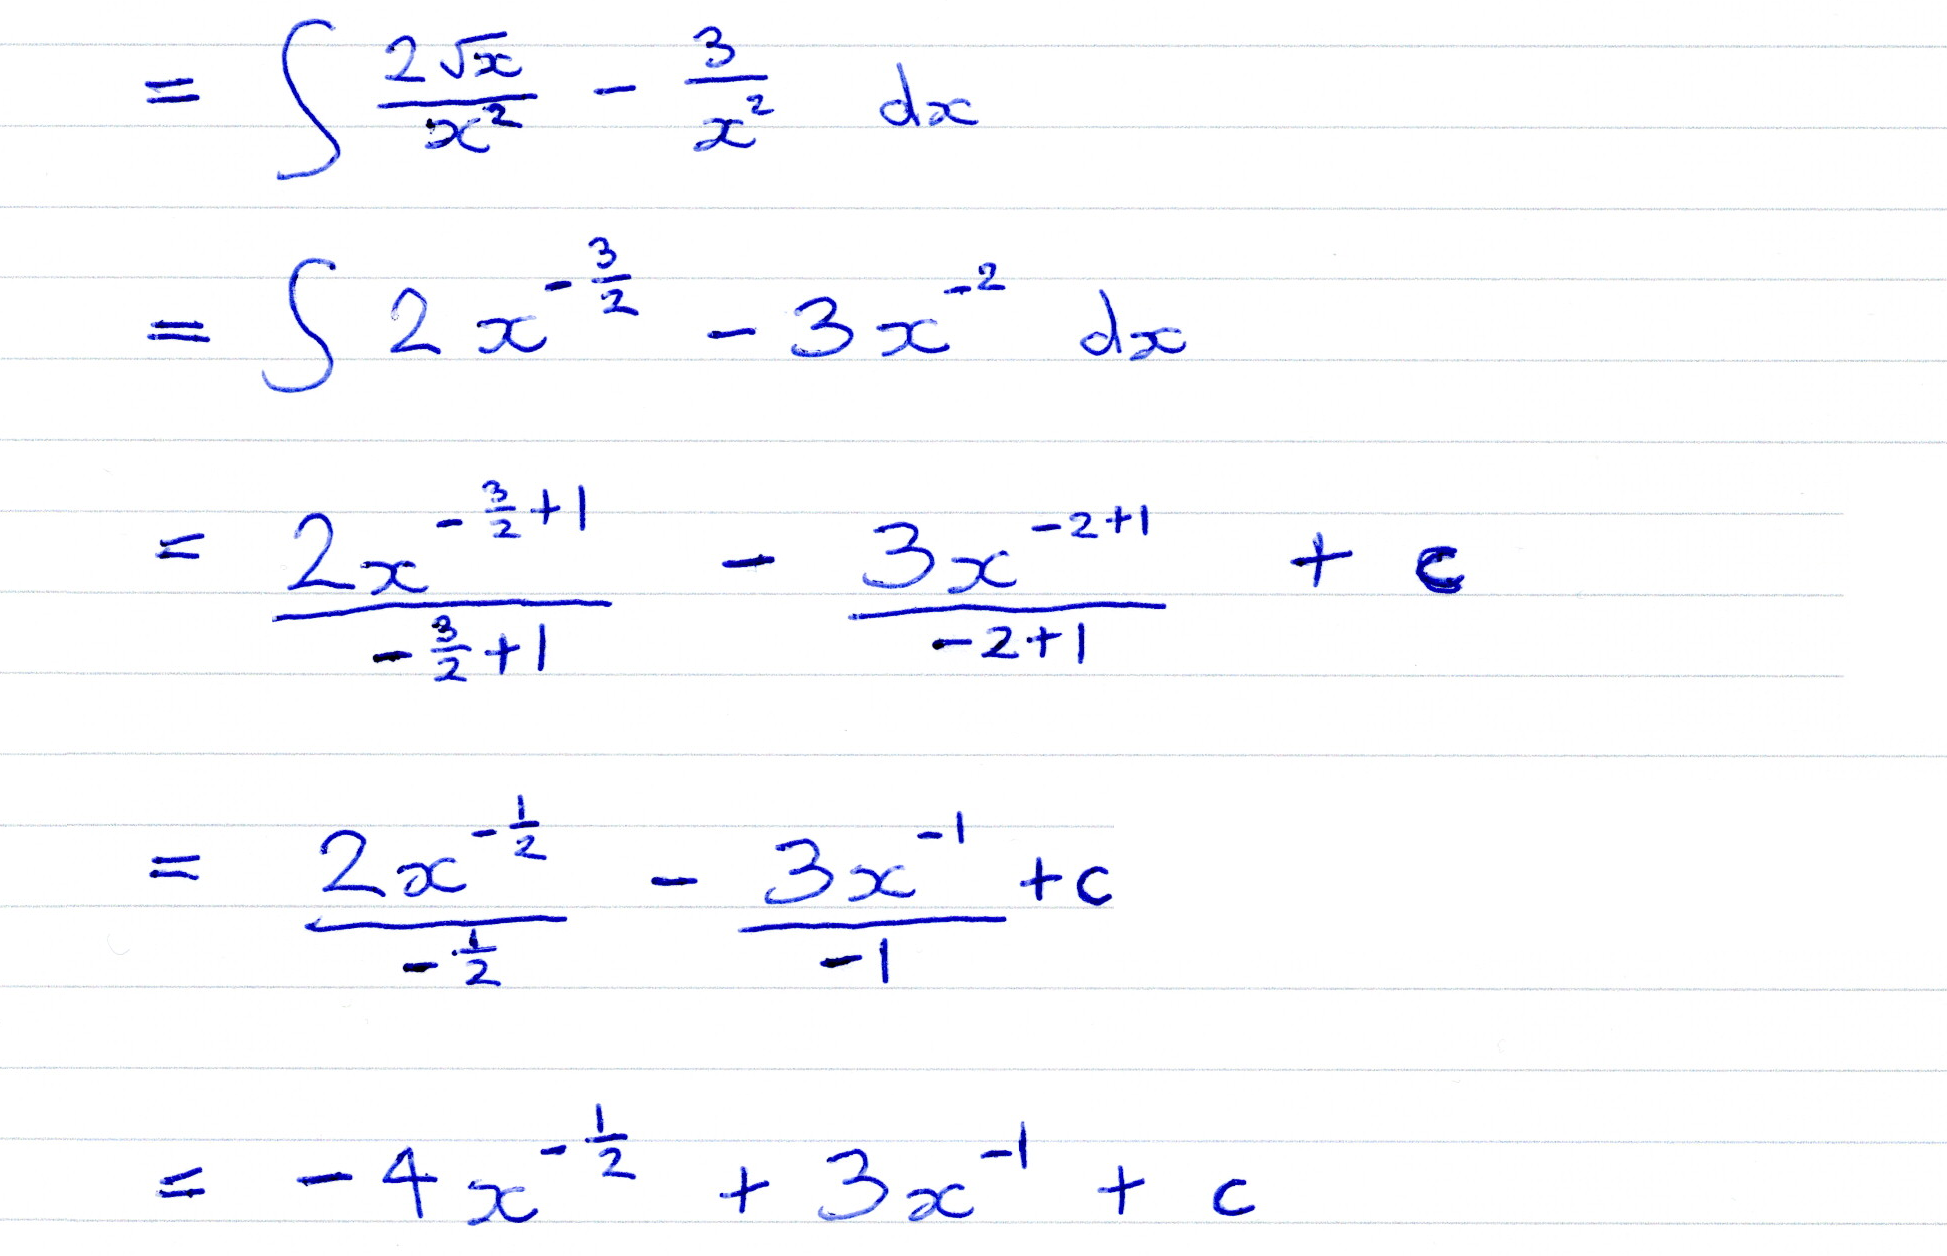 = ∫ 2√x/x² - 3/x² dx
= ∫ 2x^(-3/2) - 3x^(-2) dx
= 2x^(-3/2+1)/(-3/2+1) - 3x^(-2+1)/(-2+1) + c
= 2x^(-1/2)/(-1/2) - 3x^(-1)/(-1) + c
= -4x^(-1/2) + 3x^(-1) + c